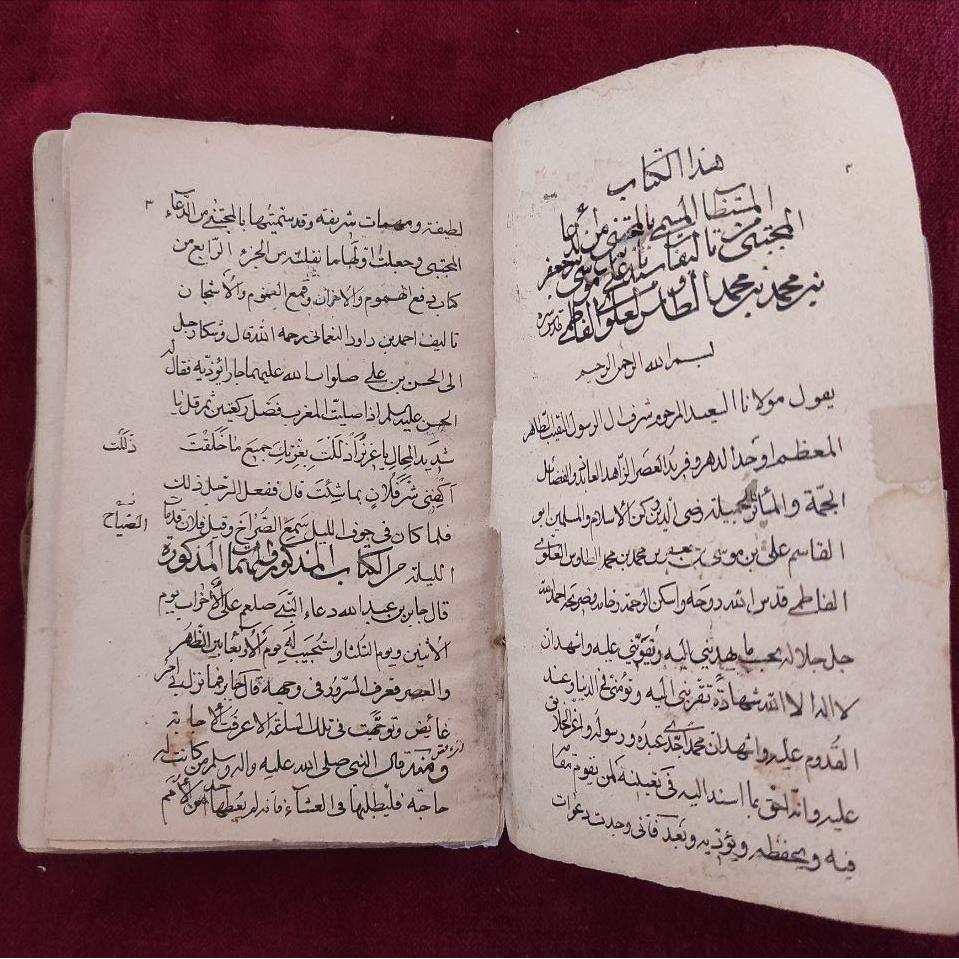 ٢
هذا الكتاب
المستطاب المسمى بالمجتنى من الدعا
المجتبى من تاليفات سيد علي بن موسى بن جعفر
بن محمد بن محمد الطاوس العلوي الفاطمي قدس سره
بسم الله الرحمن الرحيم
يقول مولانا السعيد المرحوم شرف ال الرسول النقيب الطاهر
المعظم اوحد الدهر وفريد العصر الزاهد العابد ذو الفضائل
الجمة والمآثر الجميلة رضى الدين ركن الاسلام والمسلمين ابو
القاسم علي بن موسى بن جعفر بن محمد بن محمد الطاوس العلوي
الفاطمي قدس الله روحه واسكن الرحمة رخامه وضريحه احمد الله
جل جلاله بحسب ما يهديني اليه ويقويني عليه واشهد ان
لا اله الا الله شهادة تقربني اليه وتؤمنني في الدنيا وعند
القدوم عليه واشهد ان محمدا جدي عبده ورسوله واعز الخلائق
عليه وانه الحق بما اسند اليه في تعيينه لمن يقوم مقامه
فيه ويحفظه ويؤديه وبعد فانى وجدت دعوات
٣
لطيفة ومهمات شريفة وقد سميتها بالمجتنى من الدعاء
المجتبى وجعلت اولها ما نقلته من الجزء الرابع من
كتاب دفع الهموم والاحزان وقمع الغموم والاشجان
تاليف احمد بن داود النعمانى رحمه الله قال وشكا رجل
الى الحسن بن علي صلوات الله عليهما جارا يؤذيه فقال له
الحسن عليه السلم اذا صليت المغرب فصل ركعتين ثم قل يا
شديد المحال يا عزيز اذللت بعزتك جميع ما خلقت
ذللت
اكفنى شر فلان بما شئت قال ففعل الرجل ذلك
فلما كان في جوف الليل سمع الصراخ وقيل فلان قد مات
الصياح
الليلة من الكتاب المذكور في المهمات المذكورة
قال جابر بن عبد الله دعاء النبي صلعم على الاحزاب يوم
الاثنين ويوم الثلثا واستجيب له يوم الاربعا بين الظهر
والعصر فعرف السرور في وجهه قال جابر فما نزل بي امر
غائض وتوجهت في تلك الساعة الا عرفت الاجابة
ومنه قال النبى صلى الله عليه واله وسلم من كانت له
حاجة فليطلبها فى العشاء فانه لم يعطها احد من الامم